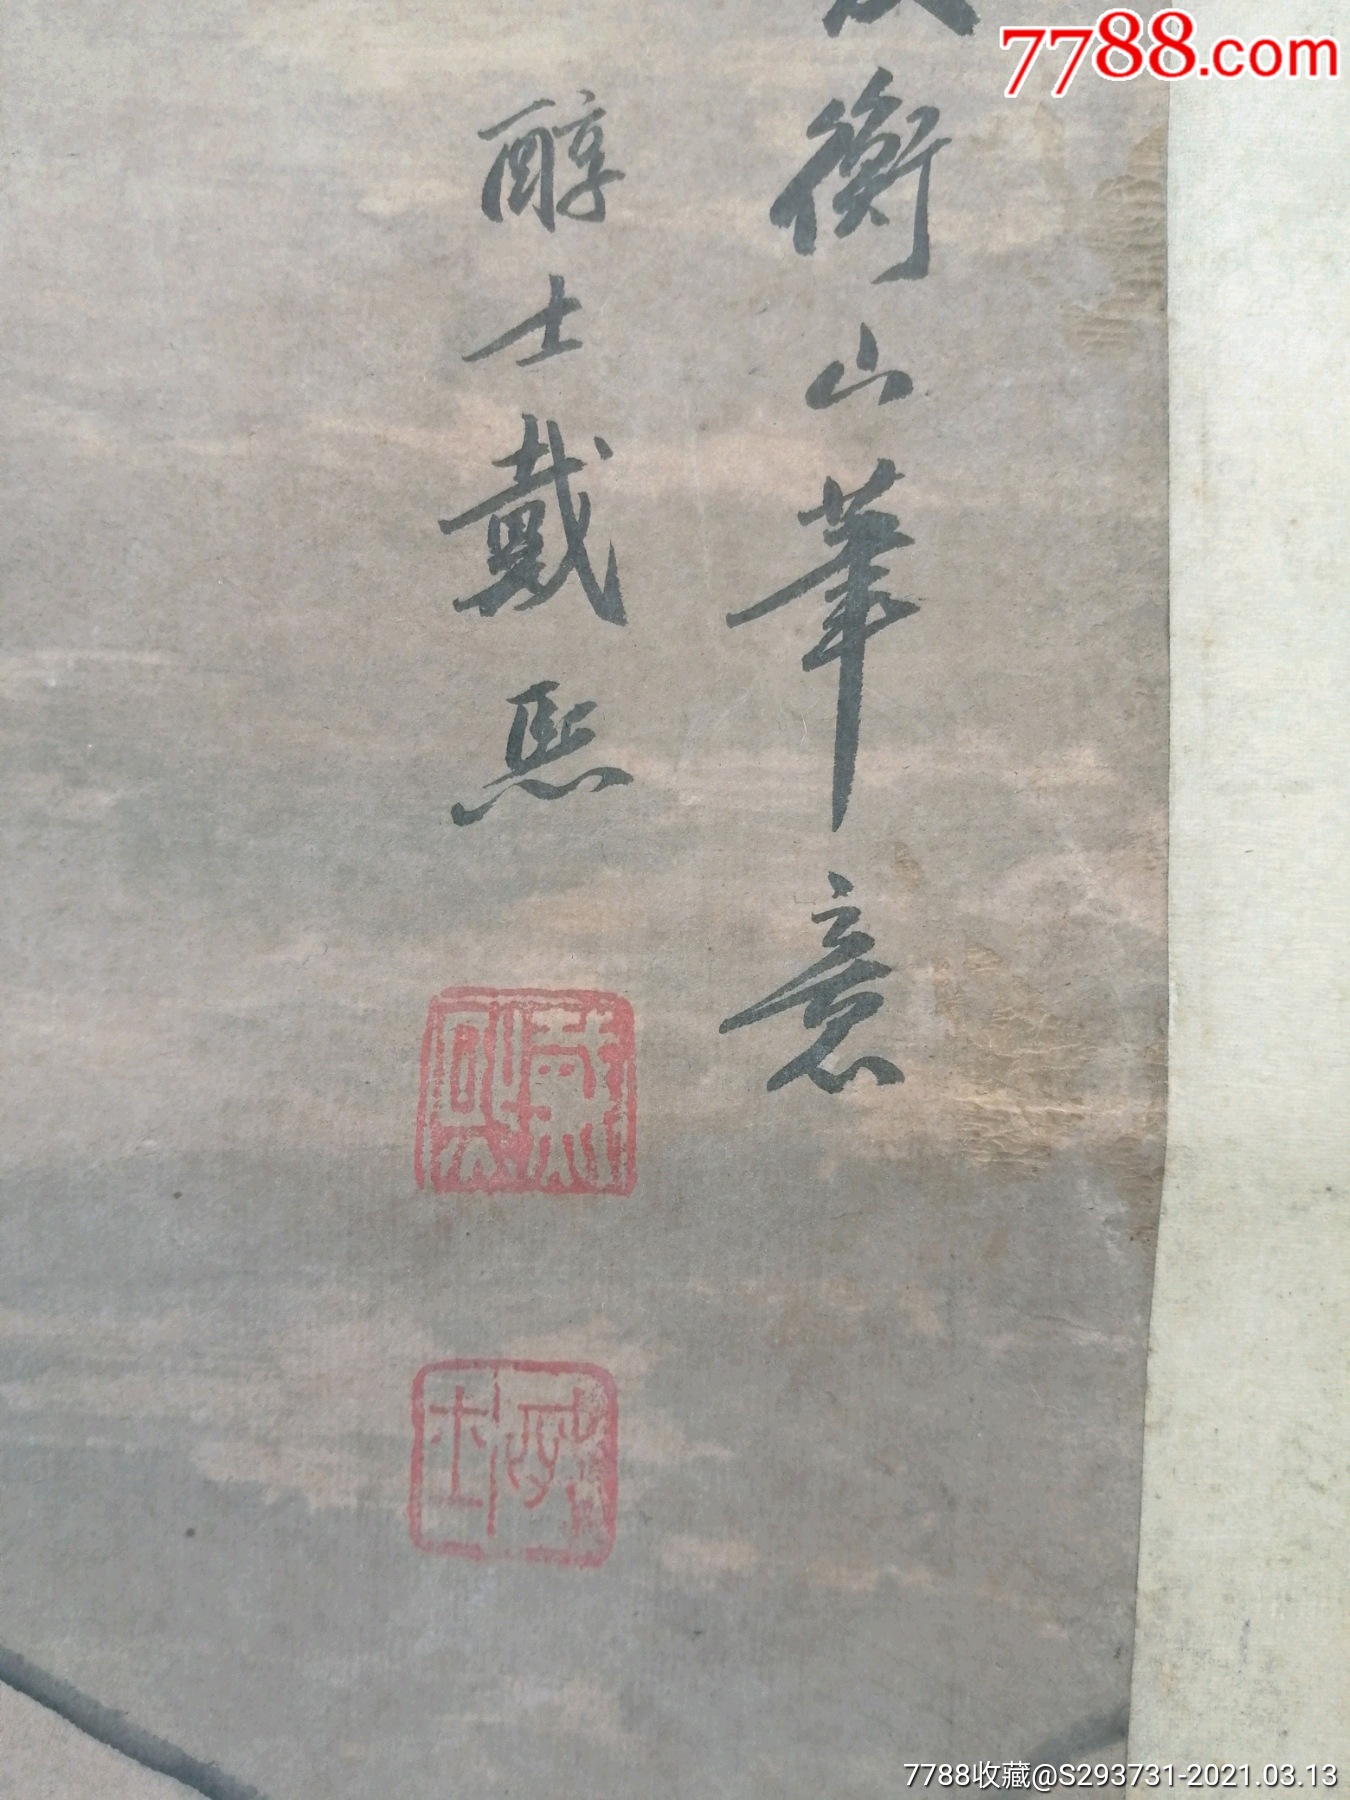 7788.com
衡山筆意
醇士戴熙
戴熙
醇士
7788收藏@S293731-2021.03.13